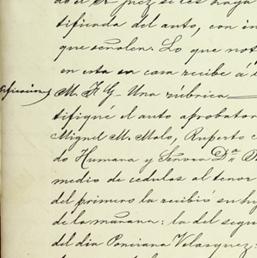 do el Sr Juez se les haga
tificada del auto, con in
que señalen. Lo que not
en esta su casa recibe á
M. F. G.- Una rúbrica
tifiqué el auto aprobator
Miguel M. Malo, Ruperto
do Humana y Señora Dª
medio de cédulas al tenor
del primero la recibió su
de la mañana: la del segu
del dia Ponciana Velasquez: